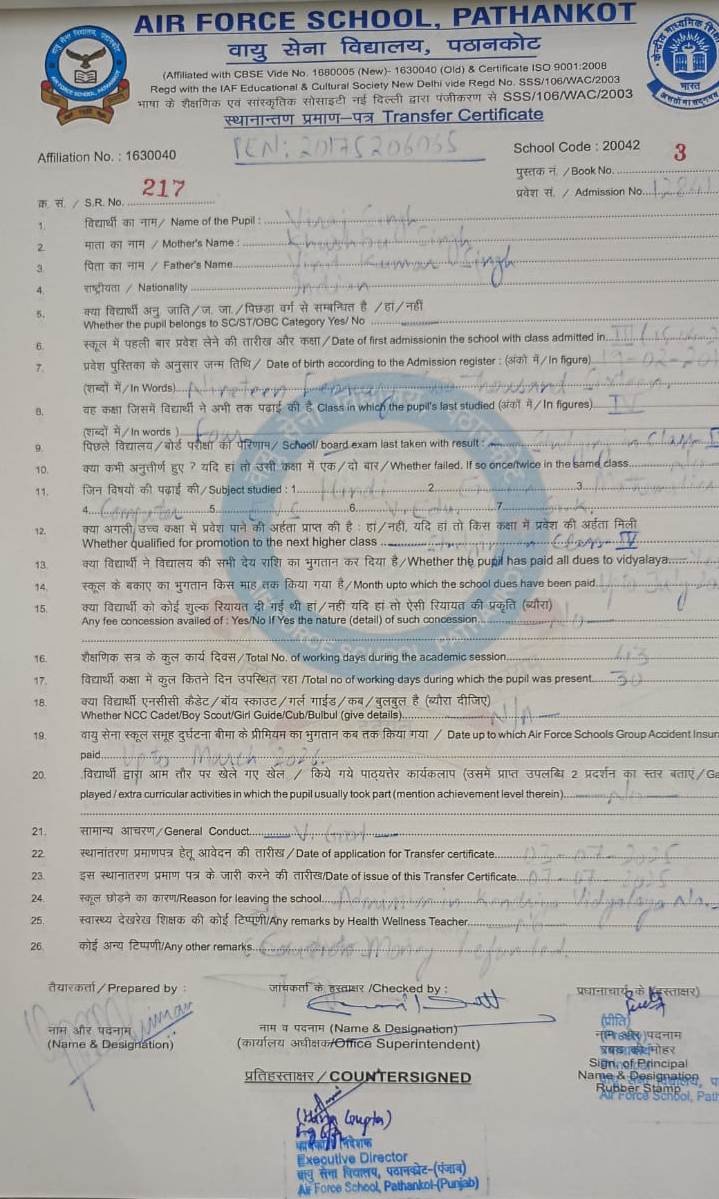 AIR FORCE SCHOOL, PATHANKOT
वायु सेना विद्यालय, पठानकोट
(Affiliated with CBSE Vide No. 1680005 (New)- 1630040 (Old) & Certificate ISO 9001:2008
Regd with the IAF Educational & Cultural Society New Delhi vide Regd No. SSS/106/WAC/2003
भाषा के शैक्षणिक एवं सांस्कृतिक सोसाइटी नई दिल्ली द्वारा पंजीकरण से SSS/106/WAC/2003
स्थानान्तण प्रमाण–पत्र Transfer Certificate
Affiliation No. : 1630040
PEN: 20175206035
School Code : 20042
पुस्तक नं. /Book No. 3
क्र. सं. / S.R. No. 217
प्रवेश सं. / Admission No.
1. विद्यार्थी का नाम/ Name of the Pupil : Viraj Singh
2. माता का नाम / Mother's Name : Singh
3. पिता का नाम / Father's Name Kumar Singh
4. राष्ट्रीयता / Nationality Indian
5. क्या विद्यार्थी अनु. जाति/ज. जा./पिछड़ा वर्ग से सम्बन्धित है /हां/नहीं
Whether the pupil belongs to SC/ST/OBC Category Yes/ No
6. स्कूल में पहली बार प्रवेश लेने की तारीख और कक्षा/Date of first admissionin the school with class admitted in III
7. प्रवेश पुस्तिका के अनुसार जन्म तिथि/ Date of birth according to the Admission register : (अंको में/In figure) 19-02-201
(शब्दों में/In Words) Nineteen February Thousand Sixteen
8. वह कक्षा जिसमें विद्यार्थी ने अभी तक पढाई की है Class in which the pupil's last studied (अंकों में/In figures) IV
(शब्दों में/In words ) Four
9. पिछले विद्यालय/बोर्ड परीक्षा का परिणाम/ School/ board exam last taken with result : in Class
10. क्या कभी अनुत्तीर्ण हुए ? यदि हां तो उसी कक्षा में एक/दो बार/Whether failed. If so once/twice in the same class
11. जिन विषयों की पढ़ाई की/Subject studied : 1. Hindi 2. 3.
4. Computer 5. 6. 7.
12. क्या अगली उच्च कक्षा में प्रवेश पाने की अर्हता प्राप्त की है : हां/नहीं, यदि हां तो किस कक्षा में प्रवेश की अर्हता मिली
Whether qualified for promotion to the next higher class Class IV
13. क्या विद्यार्थी ने विद्यालय की सभी देय राशि का भुगतान कर दिया है/Whether the pupil has paid all dues to vidyalaya
14. स्कूल के बकाए का भुगतान किस माह तक किया गया है/Month upto which the school dues have been paid
15. क्या विद्यार्थी को कोई शुल्क रियायत दी गई थी हां/नहीं यदि हां तो ऐसी रियायत की प्रकृति (ब्यौरा)
Any fee concession availed of : Yes/No If Yes the nature (detail) of such concession No
16. शैक्षणिक सत्र के कुल कार्य दिवस/Total No. of working days during the academic session 43
17. विद्यार्थी कक्षा में कुल कितने दिन उपस्थित रहा /Total no of working days during which the pupil was present 30
18. क्या विद्यार्थी एनसीसी कैडेट/बॉय स्काउट/गर्ल गाईड/कब/बुलबुल है (ब्यौरा दीजिए)
Whether NCC Cadet/Boy Scout/Girl Guide/Cub/Bulbul (give details) N/A
19. वायु सेना स्कूल समूह दुर्घटना बीमा के प्रीमियम का भुगतान कब तक किया गया / Date up to which Air Force Schools Group Accident Insur
paid Upto March 2026
20. विद्यार्थी द्वारा आम तौर पर खेले गए खेल / किये गये पाठ्यत्तेर कार्यकलाप (उसमें प्राप्त उपलब्धि 2 प्रदर्शन का स्तर बताएं/Ga
played / extra curricular activities in which the pupil usually took part (mention achievement level therein) No
21. सामान्य आचरण/General Conduct V. Good
22. स्थानांतरण प्रमाणपत्र हेतू आवेदन की तारीख/Date of application for Transfer certificate 03-07-2025
23. इस स्थानातरण प्रमाण पत्र के जारी करने की तारीख/Date of issue of this Transfer Certificate 07-07-2025
24. स्कूल छोडने का कारण/Reason for leaving the school Admission in Kendriya Vidyalaya No.
25. स्वास्थ्य देखरेख शिक्षक की कोई टिप्पणी/Any remarks by Health Wellness Teacher
26. कोई अन्य टिप्पणी/Any other remarks Money Refunded.
तैयारकर्ता/Prepared by :
जांचकर्ता के हस्ताक्षर /Checked by :
प्रधानाचार्य के (हस्ताक्षर)
नाम और पदनाम
(Name & Designation)
नाम व पदनाम (Name & Designation)
(कार्यालय अधीक्षक/Office Superintendent)
(प्रीति)
नाम और पदनाम
Sign. of Principal
Name & Designation
Rubber Stamp
Air Force School, Path
प्रतिहस्ताक्षर / COUNTERSIGNED
Gupta)
Executive Director
वायु सेना विद्यालय, पठानकोट-(पंजाब)
Air Force School, Pathankot-(Punjab)